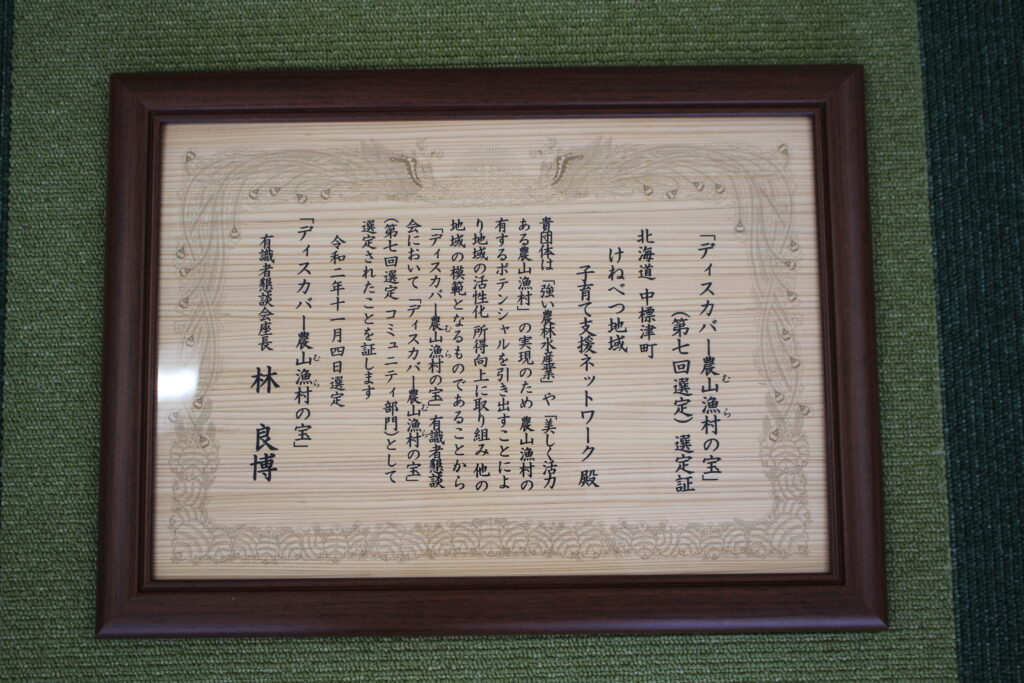 「ディスカバー農山漁村の宝」
むら
（第七回選定）選定証
北海道 中標津町
けねべつ地域
子育て支援ネットワーク 殿
貴団体は「強い農林水産業」や「美しく活力
ある農山漁村」の実現のため 農山漁村の
有するポテンシャルを引き出すことによ
り地域の活性化 所得向上に取り組み 他の
地域の模範となるものであることから
「ディスカバー農山漁村の宝」有識者懇談
むら
会において「ディスカバー農山漁村の宝」
むら
（第七回選定 コミュニティ部門）として
選定されたことを証します
令和二年十一月四日選定
「ディスカバー農山漁村の宝」
むら
有識者懇談会座長 林 良博